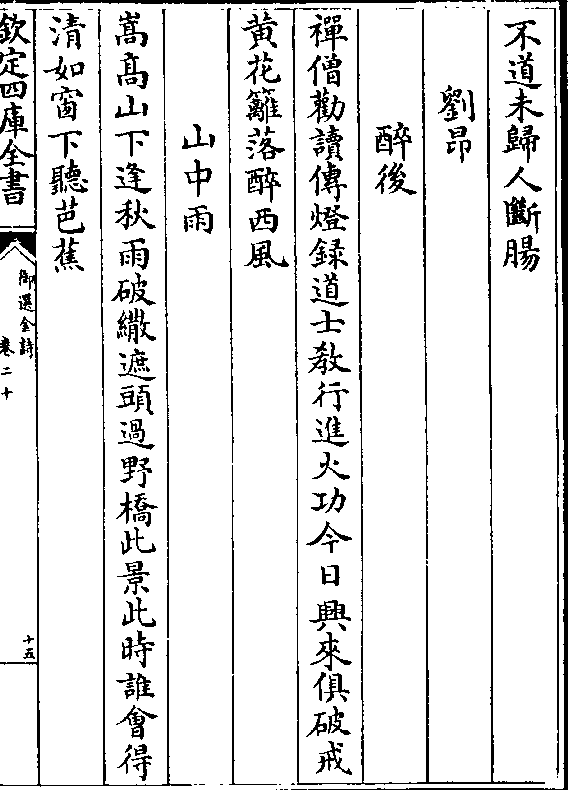 不道未歸人斷腸
劉昂
醉後
禪僧勸讀傳燈録道士教行進火功今日興來俱破戒
黄花籬落醉西風
山中雨
嵩髙山下逢秋雨破繖遮頭過野橋此景此時誰會得
清如窗下聽芭蕉
欽定四庫全書
御選金詩
卷二十
十五